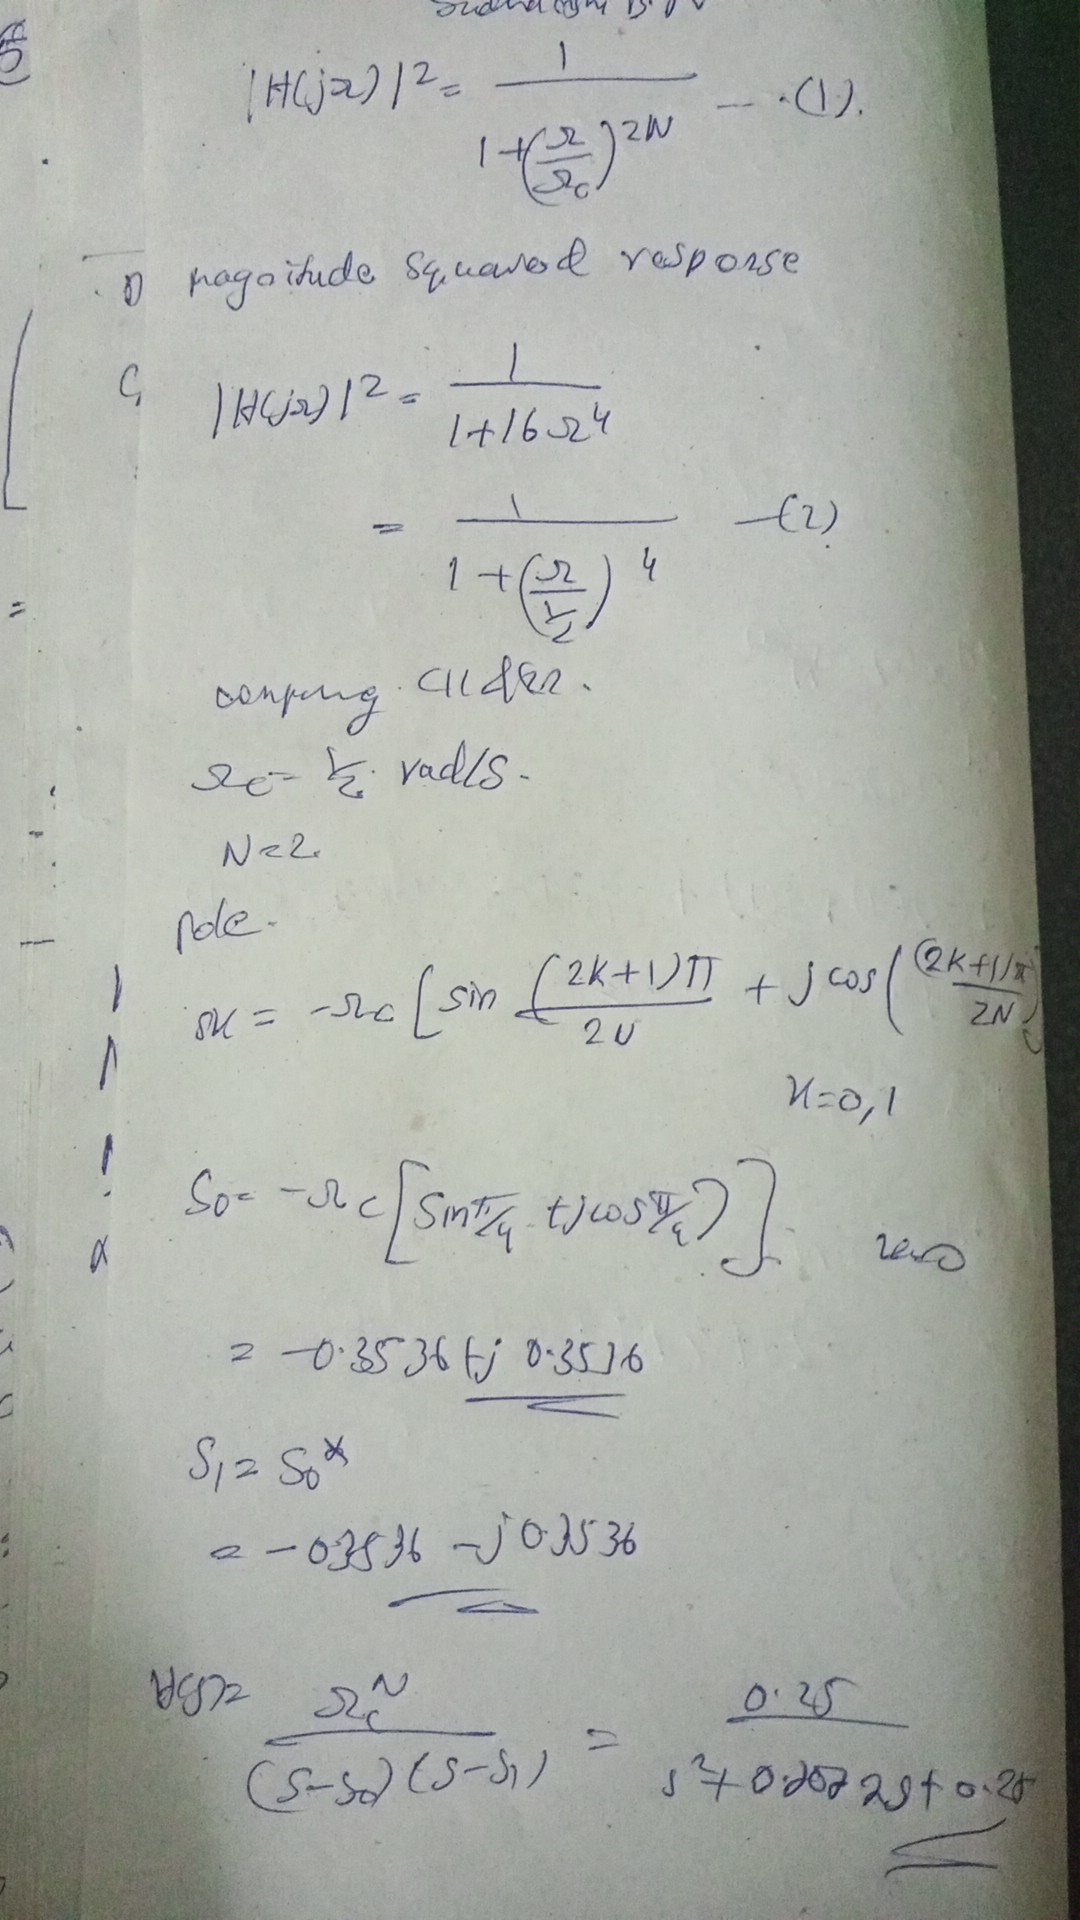 |H(jΩ)|² = 1 / (1+(Ω/Ωc)^2N) --- ·(1).
1) magnitude squared response
|H(jΩ)|² = 1 / (1+16Ω⁴)
= 1 / (1+(Ω/(1/2))⁴) —(2)
Ωc = 1/2 rad/s.
N=2.
pole.
sk = -Ωc [sin (2k+1)π / 2N + j cos((2k+1)π / 2N)
k=0,1
S0 = -Ωc [sin π/4 + j cos π/4)]
zero
= -0.3536 + j 0.3536
S1 = S0*
= -0.3536 - j0.3536
Ωc^N / (S-S0)(S-S1) = 0.25